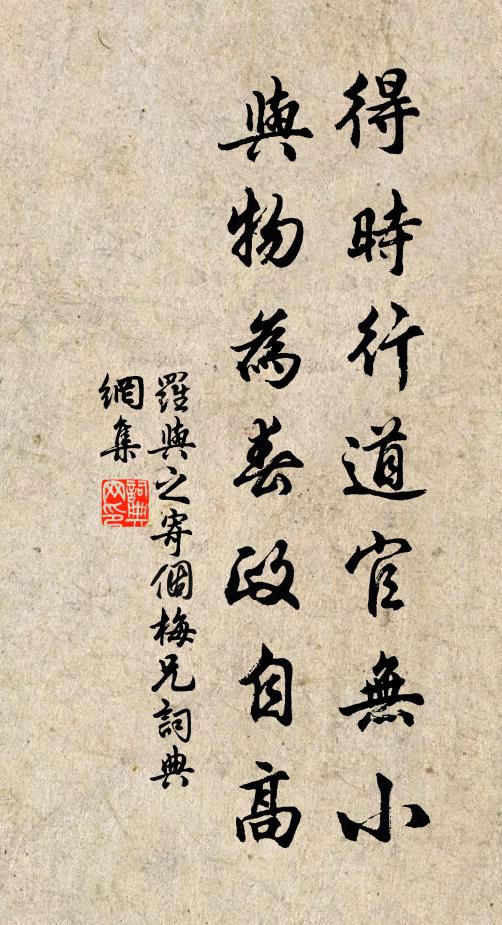 得時行道官無小
與物為春政自高
羅與之寄個梅兄詞典
網集
詞典
网印